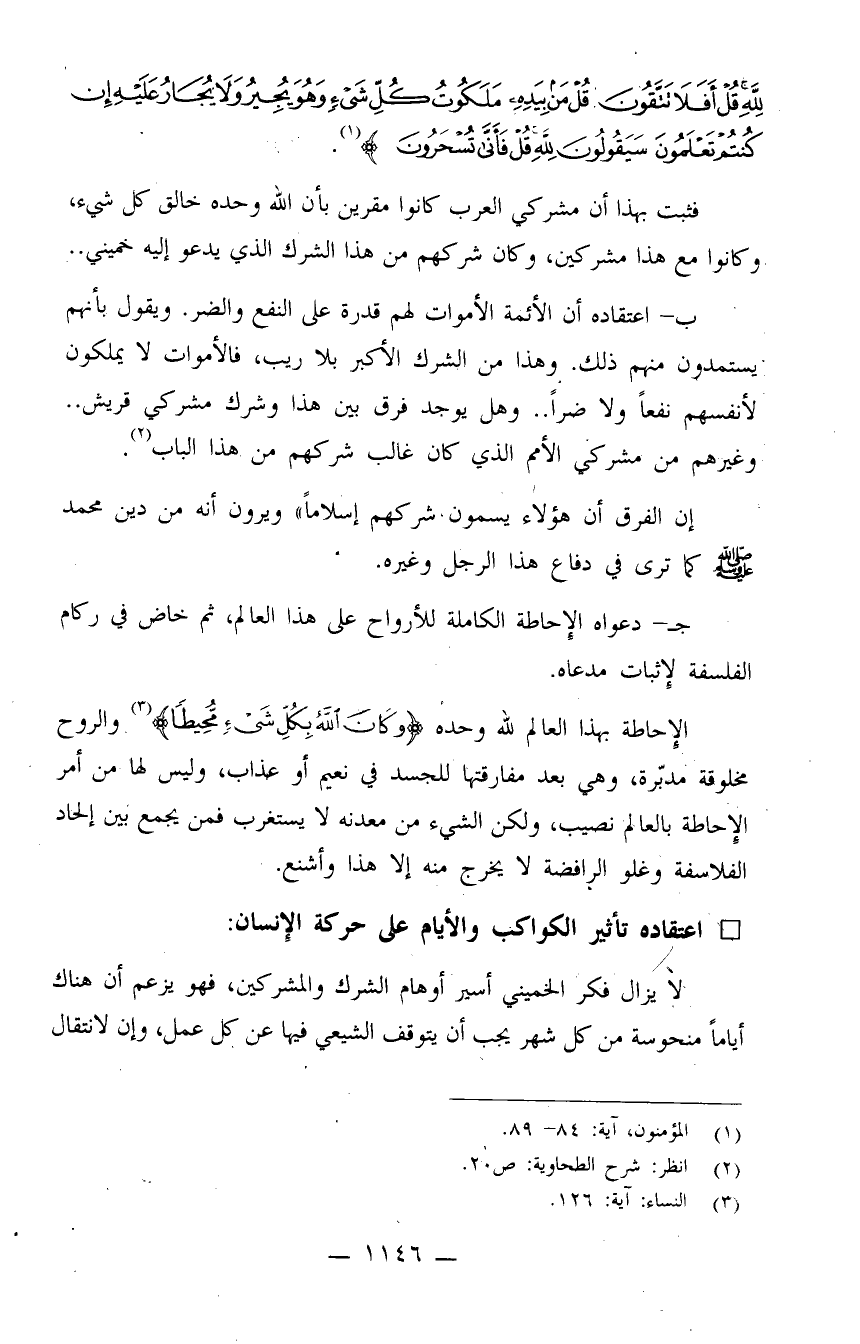 لِلَّهِ قُلْ أَفَلَا تَتَّقُونَ قُلْ مَنْ بِيَدِهِ مَلَكُوتُ كُلِّ شَيْءٍ وَهُوَ يُجِيرُ وَلَا يُجَارُ عَلَيْهِ إِن
كُنتُمْ تَعْلَمُونَ سَيَقُولُونَ لِلَّهِ قُلْ فَأَنَّى تُسْحَرُونَ ﴾(١).
فثبت بهذا أن مشركي العرب كانوا مقرين بأن الله وحده خالق كل شيء،
وكانوا مع هذا مشركين، وكان شركهم من هذا الشرك الذي يدعو إليه خميني..
ب– اعتقاده أن الأئمة الأموات لهم قدرة على النفع والضر. ويقول بأنهم
يستمدون منهم ذلك. وهذا من الشرك الأكبر بلا ريب، فالأموات لا يملكون
لأنفسهم نفعاً ولا ضراً.. وهل يوجد فرق بين هذا وشرك مشركي قريش..
وغيرهم من مشركي الأمم الذي كان غالب شركهم من هذا الباب(٢).
إن الفرق أن هؤلاء يسمون شركهم إسلاماً» ويرون أنه من دين محمد
ﷺ كما ترى في دفاع هذا الرجل وغيره.
جـ– دعواه الإحاطة الكاملة للأرواح على هذا العالم، ثم خاض في ركام
الفلسفة لإثبات مدعاه.
الإحاطة بهذا العالم لله وحده ﴿وَكَانَ ٱللَّهُ بِكُلِّ شَيْءٍ مُّحِيطًا﴾(٣) والروح
مخلوقة مدبّرة، وهي بعد مفارقتها للجسد في نعيم أو عذاب، وليس لها من أمر
الإحاطة بالعالم نصيب، ولكن الشيء من معدنه لا يستغرب فمن يجمع بين إلحاد
الفلاسفة وغلو الرافضة لا يخرج منه إلا هذا وأشنع.
□ اعتقاده تأثير الكواكب والأيام على حركة الإنسان:
لا يزال فكر الخميني أسير أوهام الشرك والمشركين، فهو يزعم أن هناك
أياماً منحوسة من كل شهر يجب أن يتوقف الشيعي فيها عن كل عمل، وإن لانتقال
(١) المؤمنون، آية: ٨٤– ٨٩.
(٢) انظر: شرح الطحاوية: ص٢٠.
(٣) النساء: آية: ١٢٦.
— ١١٤٦ —